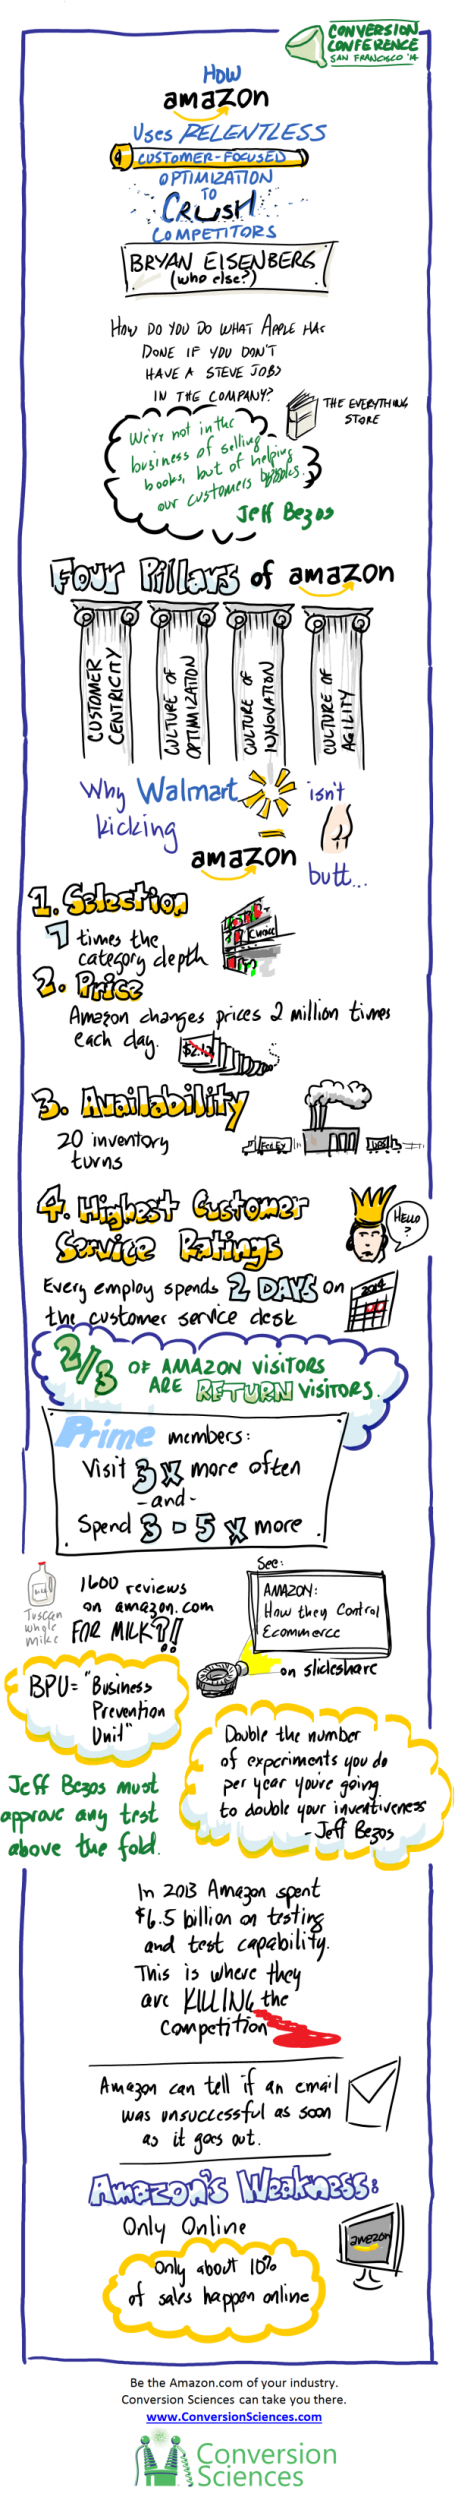 CONVERSION
CONFERENCE
SAN FRANCISCO '14
HOW
amazon
USES RELENTLESS
CUSTOMER-FOCUSED
OPTIMIZATION
TO
CRUSH
COMPETITORS
BRYAN EISENBERG
(who else?)
HOW DO YOU DO WHAT APPLE HAS
DONE IF YOU DON'T
HAVE A STEVE JOBS
IN THE COMPANY?
THE EVERYTHING
STORE
We're not in the
business of selling
books, but of helping
our customers
Jeff Bezos
Four Pillars of amazon
CUSTOMER
CENTRICITY
CULTURE OF
OPTIMIZATION
CULTURE OF
INNOVATION
CULTURE OF
AGILITY
Why Walmart isn't
kicking
amazon
butt...
1. Selection
7 times the
category depth
CHOICE
2. Price
Amazon changes prices 2 million times
each day.
3. Availability
20 inventory
turns
4. Highest Customer
Service Ratings
HELLO
?
Every employ spends 2 DAYS on
the customer service desk
2014
2/3 OF AMAZON VISITORS
ARE RETURN VISITORS.
Prime members:
Visit 3x more often
-and-
Spend 3-5x more
1600 reviews
on amazon.com
FOR MILK?!!
Tuscan
whole
milk
See:
AMAZON:
How they Control
Ecommerce
on slideshare
BPU= "Business
Prevention
Unit"
Jeff Bezos must
approve any test
above the fold.
Double the number
of experiments you do
per year you're going
to double your inventiveness
-Jeff Bezos
In 2013 Amazon spent
$6.5 billion on testing
and test capability.
This is where they
are KILLING the
competition
Amazon can tell if an email
was unsuccessful as soon
as it goes out.
Amazon's Weakness:
Only Online
amazon
Only about 10%
of sales happen online
Be the Amazon.com of your industry.
Conversion Sciences can take you there.
www.ConversionSciences.com
Conversion
Sciences